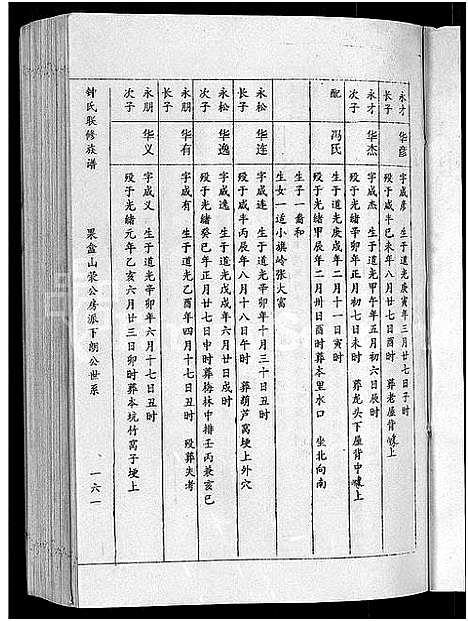 永才
长子
华彦
字成彦 生于道光庚寅年三月廿七日子时
殁于咸丰己未年八月廿七日酉时 葬老屋背㙟上
永才
次子
华杰
字成杰 生于道光甲午年五月初六日辰时
殁于光绪辛卯年正月初七日未时 葬龙头下屋背中㙟上
配
冯氏
生于道光庚戌年二月十一日寅时
殁于光绪甲辰年二月卅日酉时葬本里水口 坐北向南
生子一 裔和
生女一适小旗岭张大富
永松
长子
华连
字成连 生于道光 年十月三十日丑时
殁于咸丰丙辰年八月十八日午时 葬葫芦窝埂上外穴
永松
次子
华逸
字成逸 生于道光戊戌年六月廿日戌时
殁于光绪癸巳年正月廿七日申时葬梅林中排壬丙兼亥巳
永朋
长子
华有
字成有 生于道光乙酉年四月十七日丑时 殁葬失考
永朋
次子
华义
字成义 生于道光辛卯年六月十七日丑时
殁于光绪元年乙亥六月廿三日卯时葬本坑竹窝子埂上
钟氏联修族谱 果盒山荣公房派下朗公世系 一六一